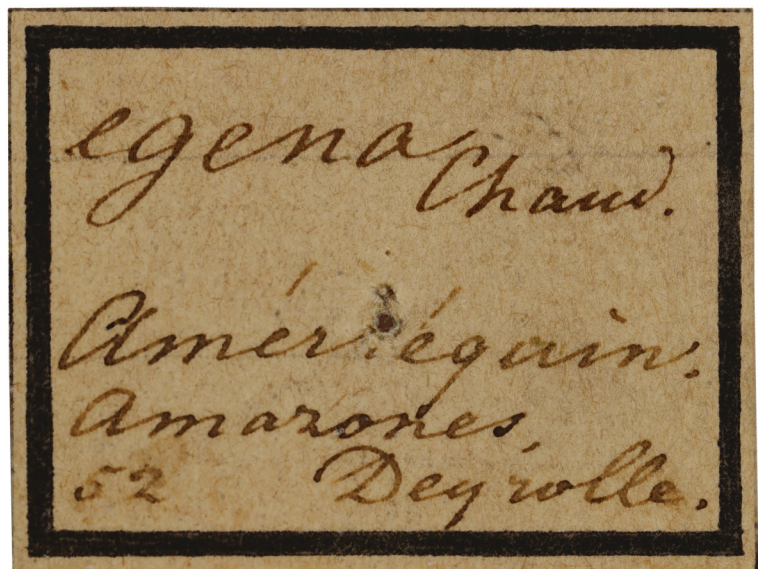 egena
Chaud.
Amér. équin.
Amazones,
52 Deyrolle.